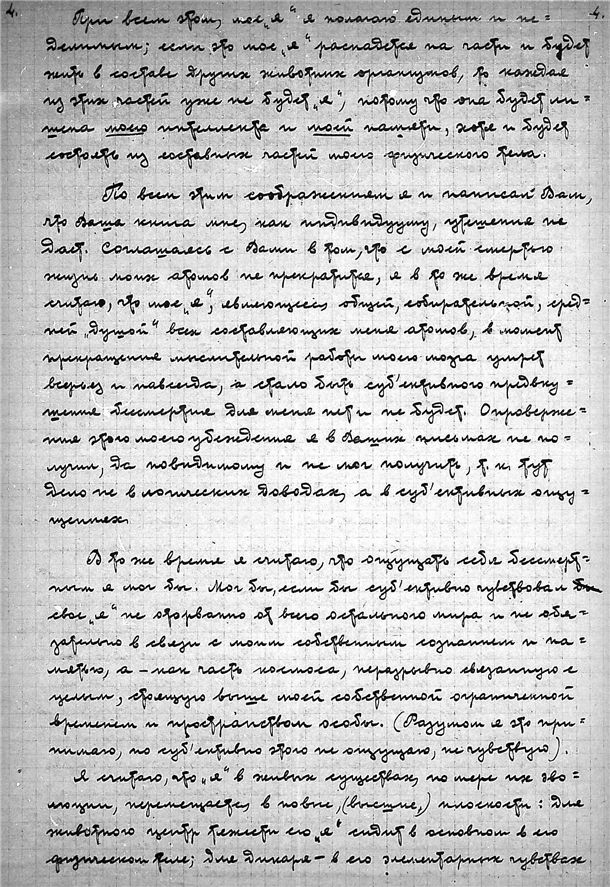 4. При всем этом, мое „я“ я полагаю единым и не= 4.
делимым; если это мое „я“ распадется на части и будет
жить в составе других животных организмов, то каждая
из этих частей уже не будет „я“, потому что она будет ли=
шена моего интеллекта и моей памяти, хотя и будет
состоять из составных частей моего физического тела.
По всем этим соображениям я и написал Вам,
что Ваша книга мне, как индивидууму, утешения не
даст. Соглашаясь с Вами в том, что с моей смертью
жизнь моих атомов не прекратится, я в то же время
считаю, что мое „я“, являющееся общей, собирательной, сред=
ней „душой“ всех составляющих меня атомов, в момент
прекращения мыслительной работы моего мозга умрет
всерьез и навсегда, а стало быть суб'ективного предвку=
шения бессмертия для меня нет и не будет. Опроверже=
ния этого моего убеждения я в Ваших письмах не по=
лучил, да повидимому и не мог получить, т. к. тут
дело не в логических доводах, а в суб'ективных ощу=
щениях.
В то же время я считаю, что ощущать себя бессмерт=
ным я мог бы. Мог бы, если бы суб'ективно чувствовал
свое „я“ не оторванно от всего остального мира и не обя=
зательно в связи с моим собственным сознанием и па=
мятью, а – как часть космоса, неразрывно связанную с
целым, стоящую выше моей собственной ограниченной
временем и пространством особы. (Разумом я это при=
нимаю, но суб'ективно этого не ощущаю, не чувствую).
Я считаю, что „я“ в живых существах, по мере их эво=
люции, перемещается в новые, (высшие,) плоскости: для
животного центр тяжести его „я“ сидит в основном в его
физическом теле; для дикаря – в его элементарных чувствах